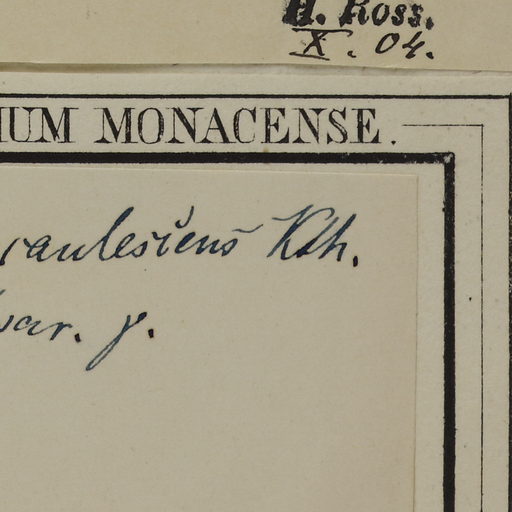 H. Ross.
X. 04.
IUM MONACENSE.
caulesiens Kth.
var. γ.